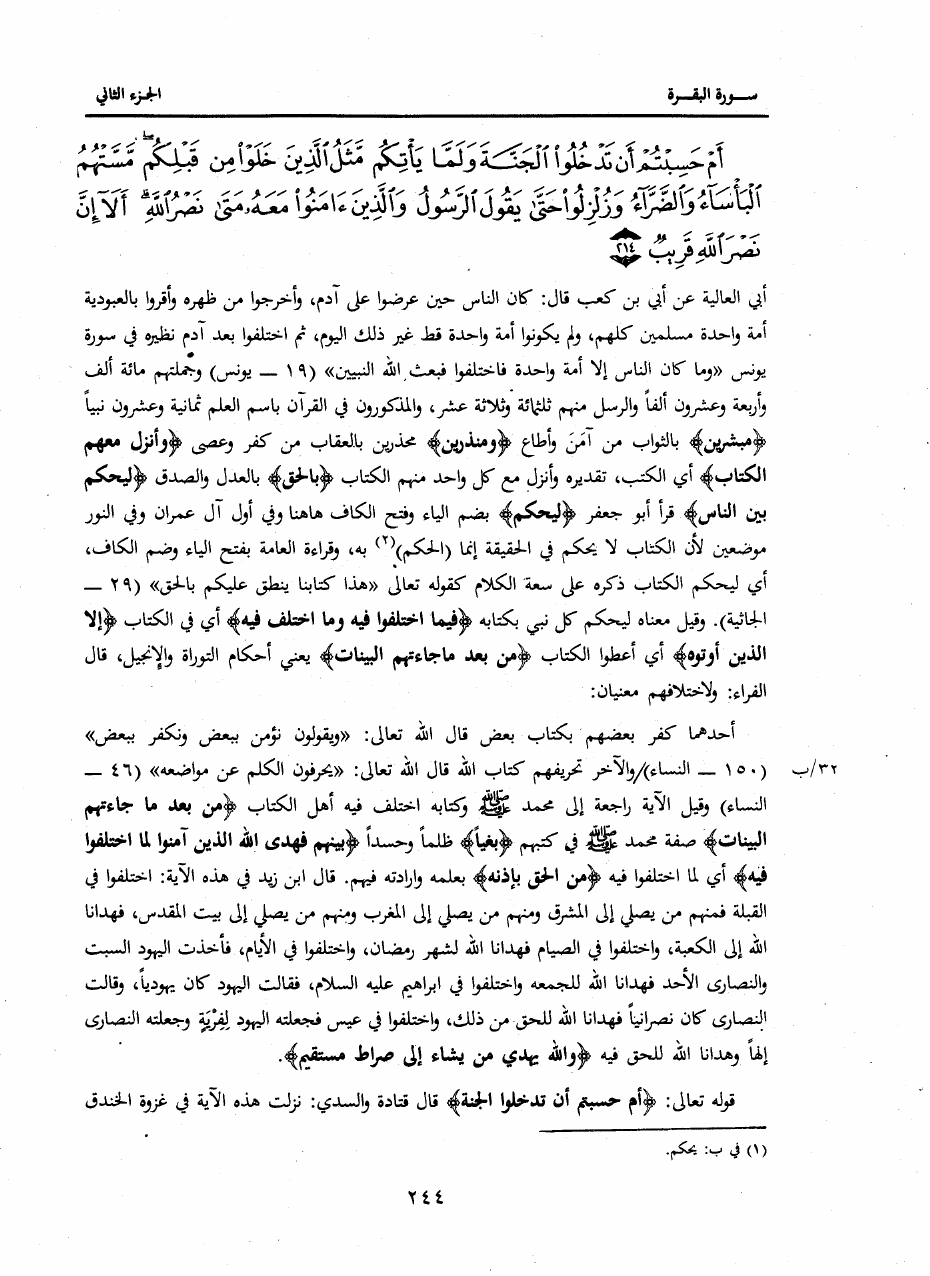 سورة البقرة
الجزء الثاني
أَمْ حَسِبْتُمْ أَن تَدْخُلُوا۟ ٱلْجَنَّةَ وَلَمَّا يَأْتِكُم مَّثَلُ ٱلَّذِينَ خَلَوْا۟ مِن قَبْلِكُم ۖ مَّسَّتْهُمُ
ٱلْبَأْسَآءُ وَٱلضَّرَّآءُ وَزُلْزِلُوا۟ حَتَّىٰ يَقُولَ ٱلرَّسُولُ وَٱلَّذِينَ ءَامَنُوا۟ مَعَهُۥ مَتَىٰ نَصْرُ ٱللَّهِ ۗ أَلَآ إِنَّ
نَصْرَ ٱللَّهِ قَرِيبٌ ۝٢١٤
أبي العالية عن أبي بن كعب قال: كان الناس حين عرضوا على آدم، وأخرجوا من ظهره وأقروا بالعبودية
أمة واحدة مسلمين كلهم، ولم يكونوا أمة واحدة قط غير ذلك اليوم، ثم اختلفوا بعد آدم نظيره في سورة
يونس «وما كان الناس إلا أمة واحدة فاختلفوا فبعث الله النبيين» (١٩ ــ يونس) وجملتهم مائة ألف
وأربعة وعشرون ألفاً والرسل منهم ثلثمائة وثلاثة عشر، والمذكورون في القرآن باسم العلم ثمانية وعشرون نبياً
﴿مبشرين﴾ بالثواب من آمَنَ وأطاع ﴿ومنذرين﴾ محذرين بالعقاب من كفر وعصى ﴿وأنزل معهم
الكتاب﴾ أي الكتب، تقديره وأنزل مع كل واحد منهم الكتاب ﴿بالحق﴾ بالعدل والصدق ﴿ليحكم
بين الناس﴾ قرأ أبو جعفر ﴿ليحكم﴾ بضم الياء وفتح الكاف هاهنا وفي أول آل عمران وفي النور
موضعين لأن الكتاب لا يحكم في الحقيقة إنما (الحكم)(٢) به، وقراءة العامة بفتح الياء وضم الكاف،
أي ليحكم الكتاب ذكره على سعة الكلام كقوله تعالى «هذا كتابنا ينطق عليكم بالحق» (٢٩ ــ
الجاثية). وقيل معناه ليحكم كل نبي بكتابه ﴿فيما اختلفوا فيه وما اختلف فيه﴾ أي في الكتاب ﴿إلا
الذين أوتوه﴾ أي أعطوا الكتاب ﴿من بعد ماجاءتهم البينات﴾ يعني أحكام التوراة والإنجيل، قال
الفراء: ولاختلافهم معنيان:
أحدهما كفر بعضهم بكتاب بعض قال الله تعالى: «ويقولون نؤمن ببعض ونكفر ببعض»
(١٥٠ ــ النساء)/والآخر تحريفهم كتاب الله قال الله تعالى: «يحرفون الكلم عن مواضعه» (٤٦ ــ
٣٢/ب
النساء) وقيل الآية راجعة إلى محمد ﷺ وكتابه اختلف فيه أهل الكتاب ﴿من بعد ما جاءتهم
البينات﴾ صفة محمد ﷺ في كتبهم ﴿بغياً﴾ ظلماً وحسداً ﴿بينهم فهدى الله الذين آمنوا لما اختلفوا
فيه﴾ أي لما اختلفوا فيه ﴿من الحق بإذنه﴾ بعلمه وارادته فيهم. قال ابن زيد في هذه الآية: اختلفوا في
القبلة فمنهم من يصلي إلى المشرق ومنهم من يصلي إلى المغرب ومنهم من يصلي إلى بيت المقدس، فهدانا
الله إلى الكعبة، واختلفوا في الصيام فهدانا الله لشهر رمضان، واختلفوا في الأيام، فأخذت اليهود السبت
والنصارى الأحد فهدانا الله للجمعه واختلفوا في ابراهيم عليه السلام، فقالت اليهود كان يهودياً، وقالت
النصارى كان نصرانياً فهدانا الله للحق من ذلك، واختلفوا في عيس فجعلته اليهود لِفِرْيَةٍ وجعلته النصارى
إلهاً وهدانا الله للحق فيه ﴿والله يهدي من يشاء إلى صراط مستقيم﴾.
قوله تعالى: ﴿أم حسبتم أن تدخلوا الجنة﴾ قال قتادة والسدي: نزلت هذه الآية في غزوة الخندق
(١) في ب: يحكم.
٢٤٤